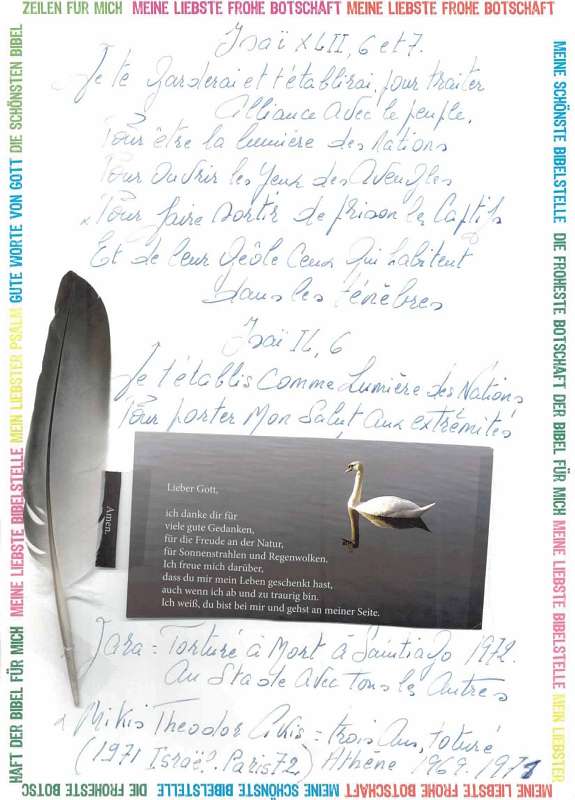 ZEILEN FÜR MICH MEINE LIEBSTE FROHE BOTSCHAFT MEINE LIEBSTE FROHE BOTSCHAFT
Isaï XLII, 6 et 7.
Je te garderai et t'établirai, pour traiter
Alliance avec le peuple,
Pour être la lumière des Nations
Pour ouvrir les yeux des Aveugles
Pour faire sortir de prison les Captifs
Et de leur geôle ceux qui habitent
dans les ténèbres
Isaï IL, 6
Je t'établis comme Lumière des Nations
Pour porter Mon Salut aux extrémités
Lieber Gott,
ich danke dir für
viele gute Gedanken,
für die Freude an der Natur,
für Sonnenstrahlen und Regenwolken.
Ich freue mich darüber,
dass du mir mein Leben geschenkt hast,
auch wenn ich ab und zu traurig bin.
Ich weiß, du bist bei mir und gehst an meiner Seite.
Amen.
Jara = Torturé à Mort à Saintiago 1972.
Au Stade avec tous les Autres
Mikis Theodor Akis = trois Ans, toturé
(1971 Israël. Paris 72) Athène 1969. 1971
HAFT DER BIBEL FÜR MICH MEINE LIEBSTE BIBELSTELLE MEIN LIEBSTER PSALM GUTE WORTE VON GOTT DIE SCHÖNSTEN BIBEL
MEINE SCHÖNSTE BIBELSTELLE DIE FROHESTE BOTSCHAFT DER BIBEL FÜR MICH MEINE LIEBSTE BIBELSTELLE MEIN LIEBSTER
MEINE LIEBSTE FROHE BOTSCHAFT MEINE SCHÖNSTE BIBELSTELLE DIE FROHESTE BOTSC